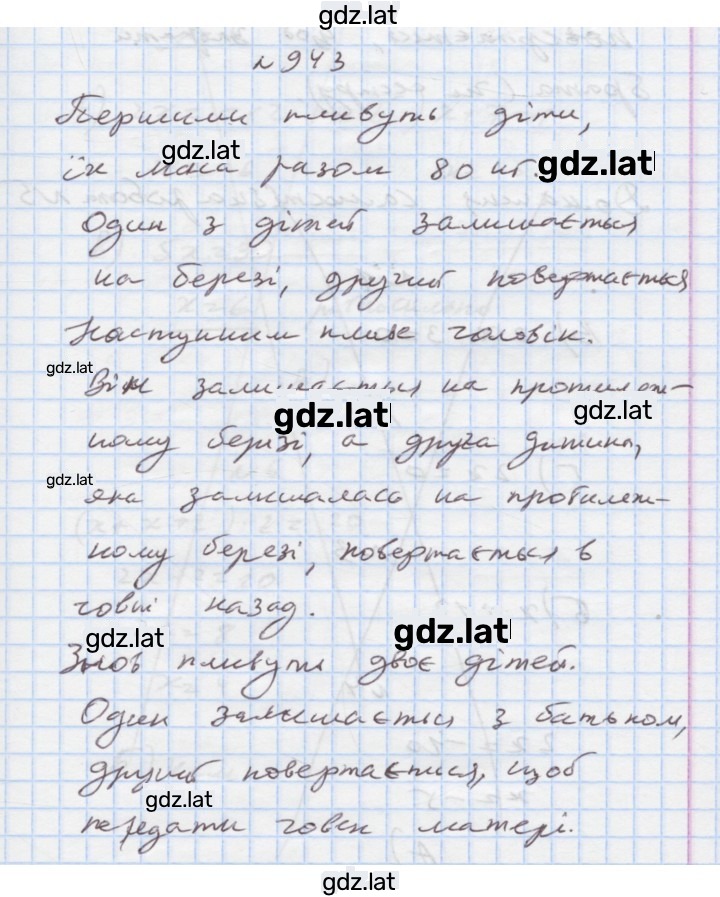 gdz.lat
№943
Першими пливуть діти,
gdz.lat
їх маса разом 80 кг.
gdz.lat
Один з дітей залишається
на березі, другий повертається
Наступним пливе чоловік.
gdz.lat
Він залишається на протилеж-
gdz.lat
gdz.lat
ному березі, а друга дитина,
gdz.lat
яка залишалась на протилеж-
ному березі, повертається в
човні назад.
gdz.lat
gdz.lat
Знов пливуть двоє дітей.
Один залишається з батьком,
другий повертається, щоб
gdz.lat
передати човен матері.
gdz.lat